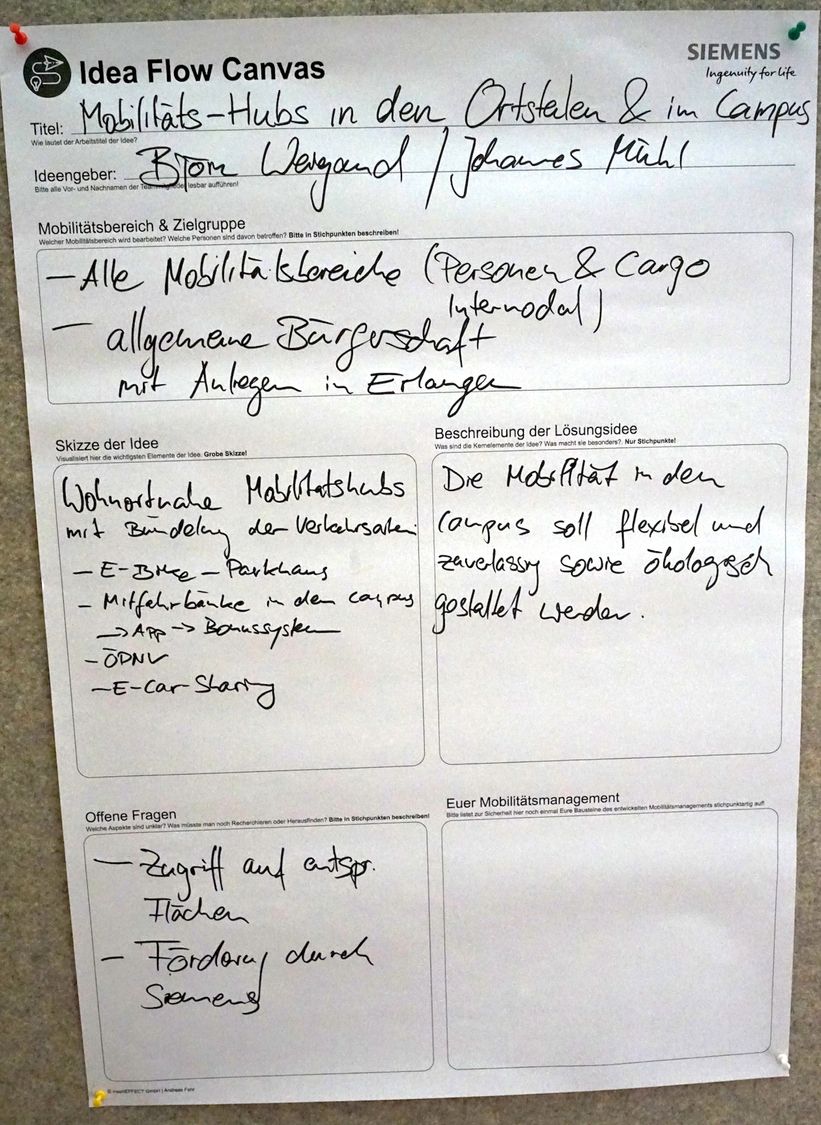 SIEMENS
Ingenuity for life
Idea Flow Canvas
Titel: Mobilitäts-Hubs in den Ortsteilen & im Campus
Wie lautet der Arbeitstitel der Idee?
Ideengeber: Björn Weigand / Johannes Mühl
Bitte alle Vor- und Nachnamen der Teammitglieder lesbar aufführen!
Mobilitätsbereich & Zielgruppe
Welcher Mobilitätsbereich wird bearbeitet? Welche Personen sind davon betroffen? Bitte in Stichpunkten beschreiben!
– Alle Mobilitätsbereiche (Personen & Cargo
Intermodal)
– allgemeine Bürgerschaft
mit Anliegen in Erlangen
Skizze der Idee
Visualisiert hier die wichtigsten Elemente der Idee. Grobe Skizze!
Wohnortnahe Mobilitätshubs
mit Bündelung der Verkehrsarten
– E-Bike-Parkhaus
– Mitfahrbänke in dem campus
→ App → Bonussystem
– ÖPNV
– E-Car-Sharing
Beschreibung der Lösungsidee
Was sind die Kernelemente der Idee? Was macht sie besonders?. Nur Stichpunkte!
Die Mobilität in den
campus soll flexibel und
zuverlässig sowie ökologisch
gestaltet werden.
Offene Fragen
Welche Aspekte sind unklar? Was müsste man noch Recherchieren oder Herausfinden? Bitte in Stichpunkten beschreiben!
– Zugriff auf entspr.
Flächen
– Förderung durch
Siemens
Euer Mobilitätsmanagement
Bitte listet zur Sicherheit hier noch einmal Eure Bausteine des entwickelten Mobilitätsmanagements stichpunktartig auf!